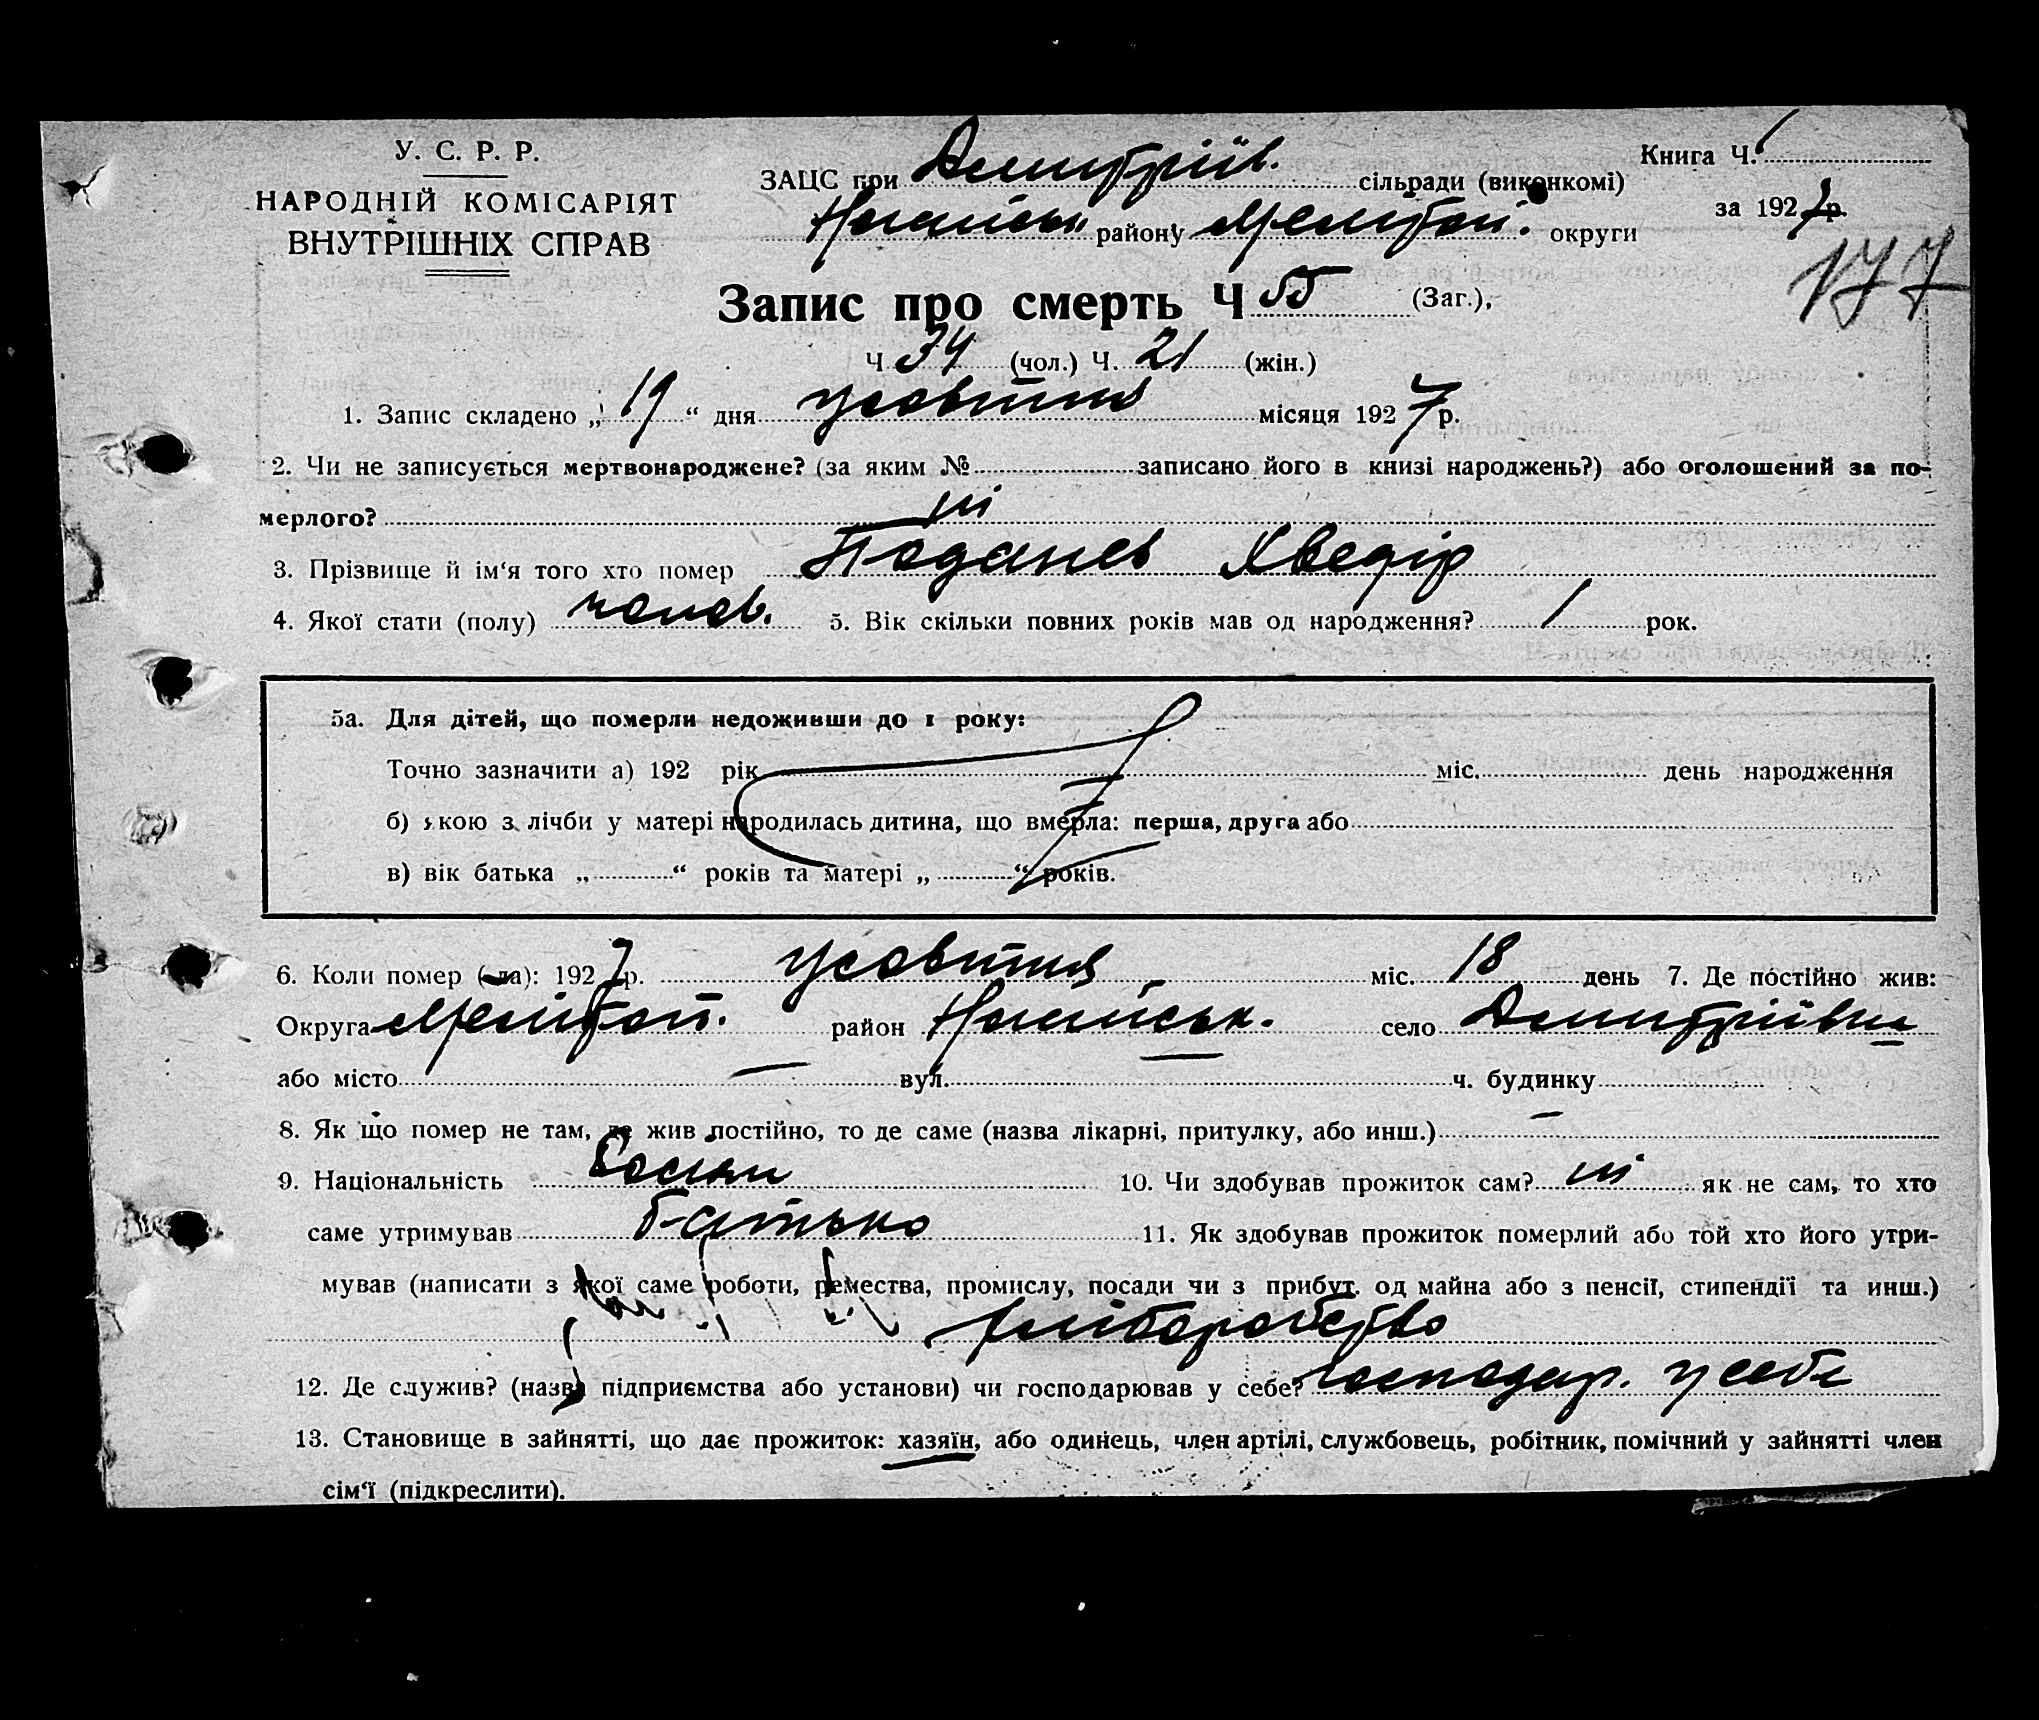 У. С. Р. Р.
НАРОДНІЙ КОМІСАРІЯТ
ВНУТРІШНІХ СПРАВ
Книга Ч. 1
за 1927 р.
177
ЗАЦС при Дмитріїв. сільради (виконкомі)
Ногайськ району Мелітоп. округи
Запис про смерть Ч 55 (Заг.),
Ч 34 (чол.) Ч. 21 (жін.)
1. Запис складено „ 19 “ дня жовтня місяця 1927 р.
2. Чи не записується мертвонароджене? (за яким № записано його в книзі народжень?) або оголошений за по-
мерлого? ні
3. Прізвище й ім‘я того хто помер Хведір
4. Якої стати (полу) чолов. 5. Вік скільки повних років мав од народження? 1 рок.
5а. Для дітей, що померли недоживши до 1 року:
Точно зазначити а) 192 рік міс. день народження
б) якою з лічби у матері народилась дитина, що вмерла: перша, друга або
в) вік батька „ “ років та матері „ “ років.
6. Коли помер (-ла): 1927 р. жовтня міс. 18 день 7. Де постійно жив:
Округа Мелітоп. район Ногайськ. село Дмитріївка
або місто — вул. — ч. будинку
8. Як що помер не там, де жив постійно, то де саме (назва лікарні, притулку, або инш.) —
9. Національність 10. Чи здобував прожиток сам? ні як не сам, то хто
саме утримував батько 11. Як здобував прожиток померлий або той хто його утри-
мував (написати з якої саме роботи, ремества, промислу, посади чи з прибут. од майна або з пенсії, стипендії та инш.)
хліборобство
12. Де служив? (назва підприємства або установи) чи господарював у себе? господар. у себе
13. Становище в зайнятті, що дає прожиток: хазяїн, або одинець, член артілі, службовець, робітник, помічний у зайнятті член
сім‘ї (підкреслити).